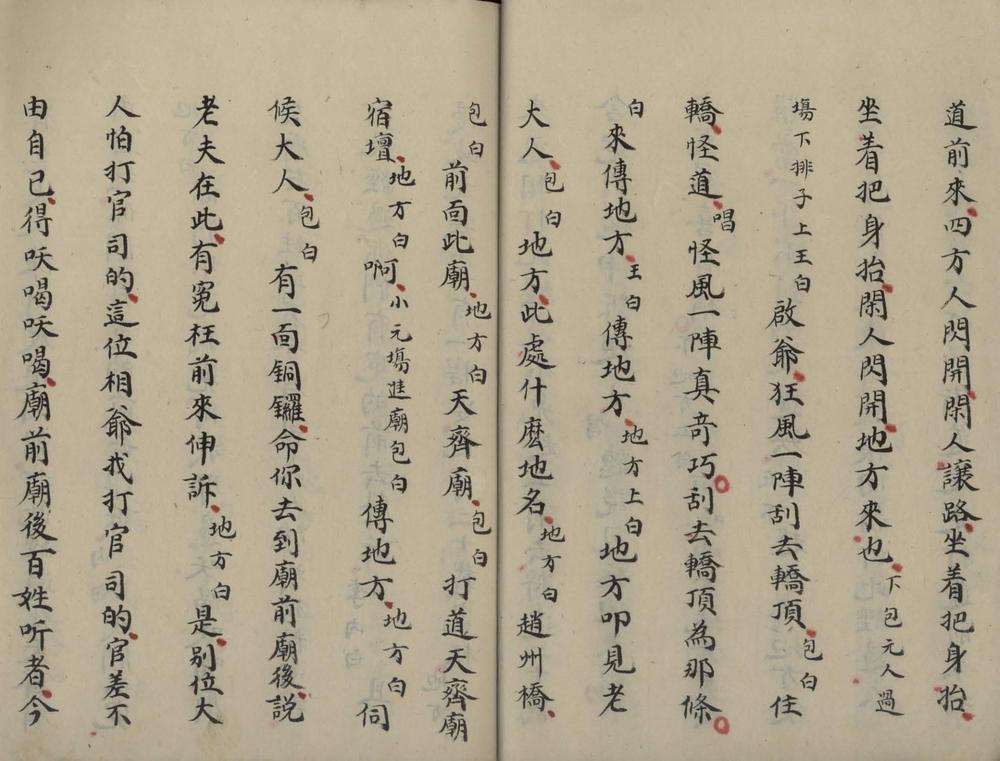 道前來四方人閃開閑人讓路坐着把身抬
坐着把身抬閑人閃開地方來也下包元人過
塲下排子上王白啟爺狂風一陣刮去轎頂包白住
轎怪道唱怪風一陣真竒巧刮去轎頂為那條
白來傳地方王白傳地方地方上白地方叩見老
大人包白地方此處什麽地名地方白趙州橋
包白前面此廟地方白天齊廟包白打道天齊廟
宿壇地方白啊小元塲進廟包白傳地方地方白伺
候大人包白有一面銅鑼命你去到廟前廟後說
老夫在此有寃枉前來伸訴地方白是别位大
人怕打官司的這位相爺找打官司的官差不
由自已得呌喝呌喝廟前廟後百姓听者今